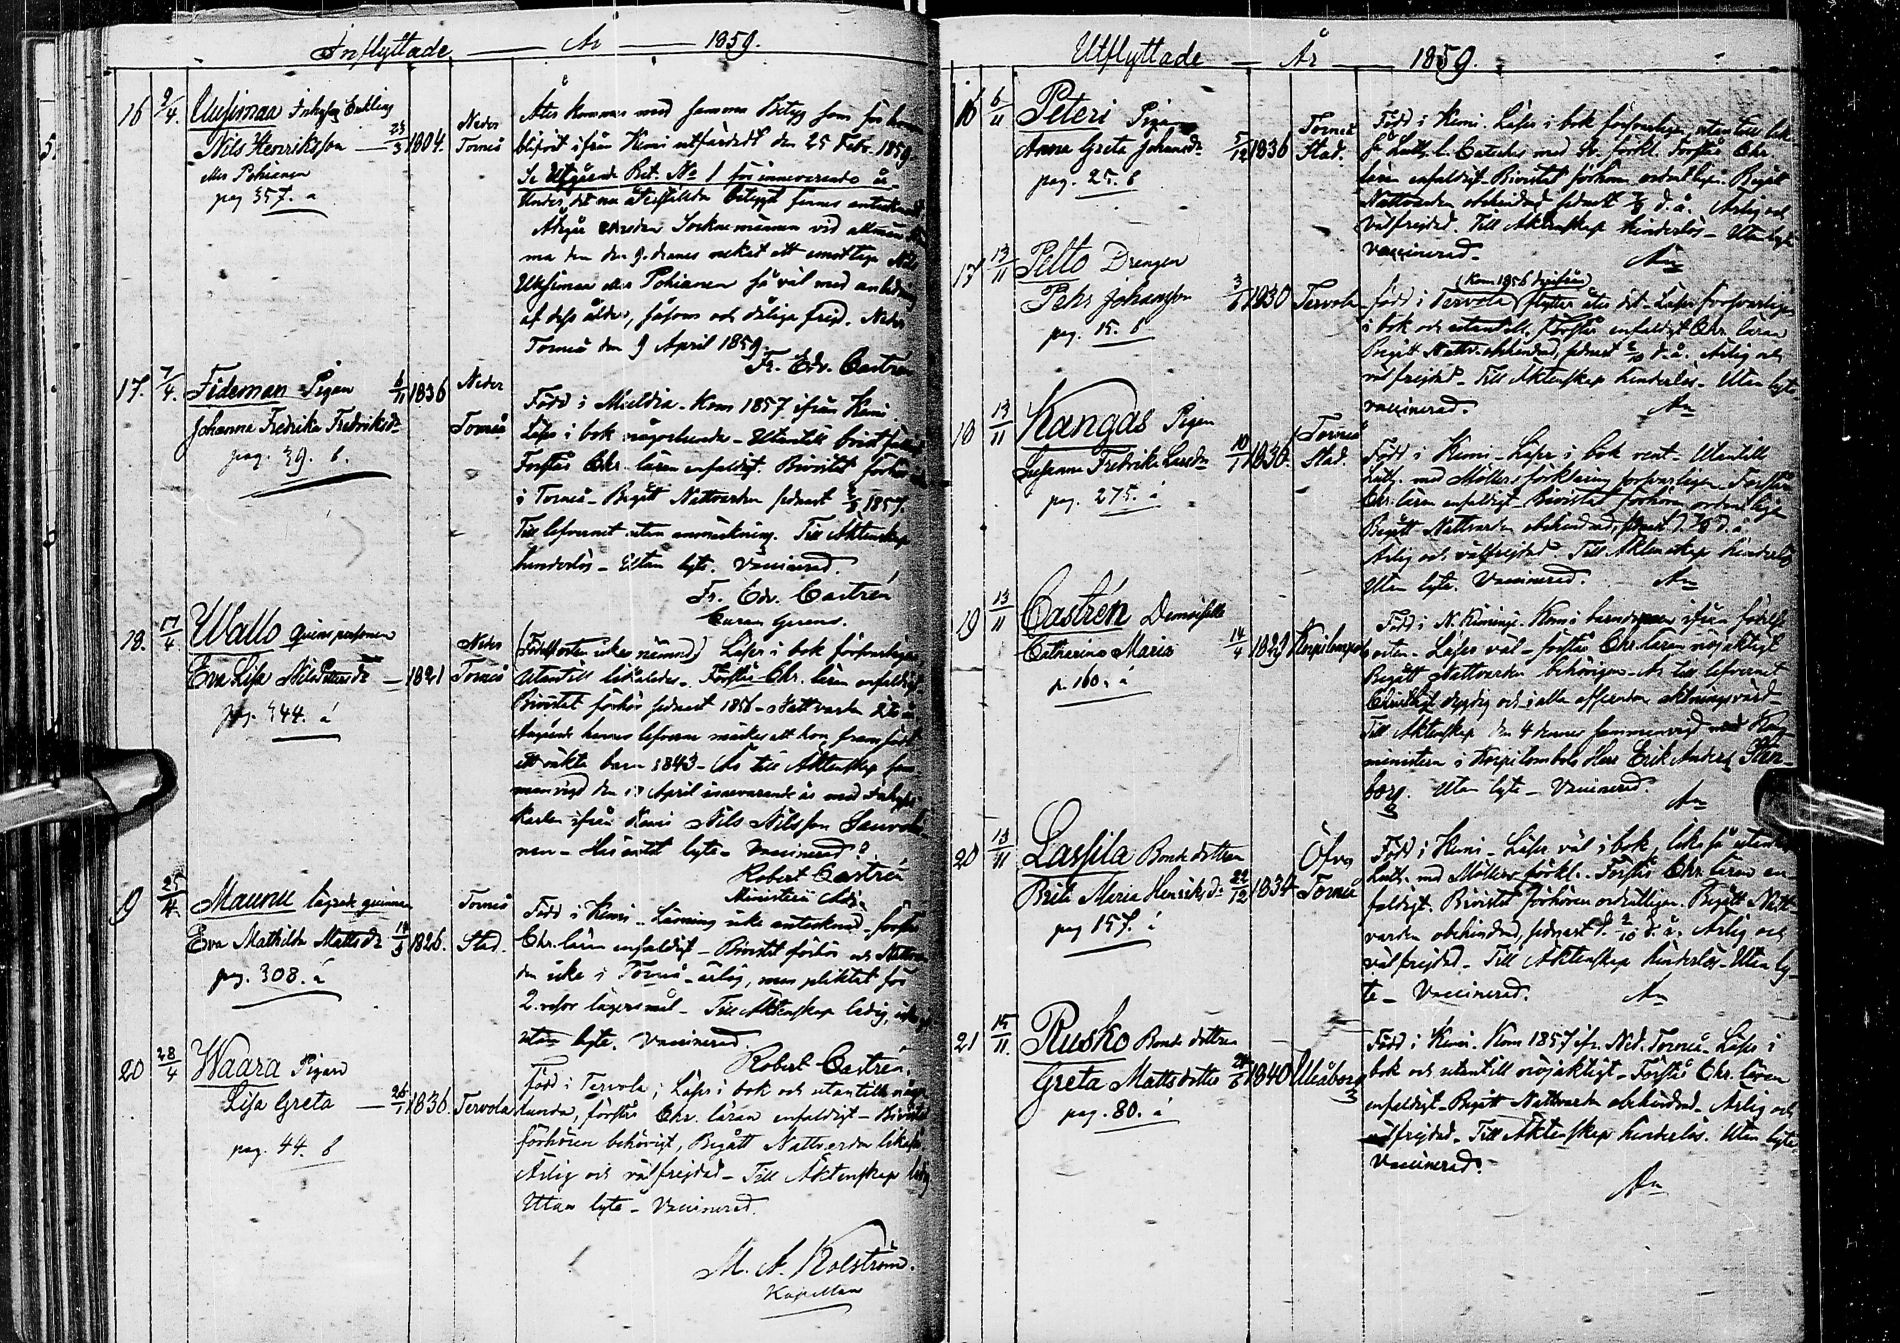 Inflyttade — År — 1859.
16 9/4. Uusimaa Inhyses Enkling
Nils Henriksson — 23/3 1804. Neder Torneå
eller Pohianen
pag 357. a
Åter kommer med samma Betyg som för honom
blifvit ifrån Kemi utfärdadt den 25 Febr. 1859.
Se Utgående Bet. No 1 för innevarande år.
Under det nu återställda betyget finnes antecknadt
vid
ma den den 9. dennes nekat att emottaga Nils
Uusimaa eller Pohianen så väl med anledning
af dess ålder, såsom och dåliga frejd. Neder
Torneå den 9 April 1859.
Fr. Edv. Castrén
17. 7/4. Fideman Pigan 6/11 1836 Neder
Johanna Fredrika Fredriksdr Torneå
pag. 39. b.
Född i - Kom 1857 ifrån Kemi.
Läser i bok någorlunda - Utantill
Förstår Chr. läran enfaldigt. Bivistat förhör
i Torneå - Begått Nattvarden sednast 1857.
Till lefvernet utan anmärkning. Till Äktenskap
hinderlös - Utan lyte. Vaccinerad.
Fr. Edv. Castrén
Curam Gerens.
18. 17/4 Wallo qvinspersonen
Eva Lisa Nils Pettersdr — 1821 Neder Torneå
pag. 344. a
(Födelseorten icke nämnd) Läser i bok försvarligen
Utantill likaledes - Förstår Chr. läran enfaldigt
Bivistat förhör sednast 1856 - Nattvarden
Angående hennes lefverne märkes att hon framfödt
ett oäkta barn 1843 - Är till Äktenskap sam-
manvigd den April innevarande år med Inhyses
Karlen ifrån Kemi Nils Nilsson
nen - Har intet lyte - Vaccinerad?
Robert Castrén
Ministerii Adj.
9 25/4. Maunu lägrade qvinnan
Eva Mathilda Mattsdr 18/3 1826. Torneå Stad.
pag. 308. a
Född i Kemi - Läsning icke antecknad - förstår
Chr. läran enfaldigt - Bivistat förhör och Nattvar
den icke i Torneå - ärlig, men pliktat för
2. resor lägersmål - Till Äktenskap ledig,
utan lyte. Vaccinerad.
Robert Castrén.
20 28/4 Waara Pigan
Lisa Greta — 26/1 1836. Tervola
pag. 44. b
Född i Tervola; Läser i bok och utantill någor
lunda, förstår Chr. läran enfaldigt - Bivistat
förhören behörigt, Begått Nattvarden likaså
Ärlig och välfrejdad - Till Äktenskap ledig
Utan lyte - Vaccinerad.
M. A. Rolström.
Kapellan
Utflyttade — År — 1859.
16 6/11 Peteri Pigan
Anna Greta Johansdr 5/12 1836 Torneå Stad.
pag. 25. b
Född i Kemi. Läser i bok försvarligen, utantill lika
så Luth. l. Cateches med Sv. förkl. Förstår Chr.
läran enfaldigt. Bivistat förhören ordentligen. Begått
Nattvarden obehindrad sednast d. å. Ärlig och
välfrejdad. Till Äktenskap hinderlös - Utan lyte
vaccinerad. An
17 13/11 Pelto Drengen
Pehr Johansson 3/1 1830 Tervola
pag. 15. b
(Kom 1856 derifrån)
Född i Tervola flyttar åter dit - Läser försvarligen
i bok och utantill, Förstår enfaldigt Chr. läran
Begått Nattv. obehindrad, sednast 2/10 d. å. Ärlig och
välfrejdad - Till Äktenskap hinderlös - Utan lyte
vaccinerad. An
18 13/11 Kangas Pigan
Susanna Fredrika Larsdr 10/1 1836 Torneå Stad.
pag. 275. a
Född i Kemi - Läser i bok rent - Utantill
Luth. med Möllers förklaring försvarligen - Förstår
Chr. läran enfaldigt - Bivistat förhören ordentligen
Begått Nattvarden obehindrad, sednast d. å.
Ärlig och välfrejdad - Till Äktenskap hinderlös
Utan lyte. Vaccinerad. An
19 13/11 Castrén Demoiselle
Catharina Maria 14/4 1829 Korpilompolo
p. 160. a
Född i N. Kiminge - Kom i barndomen ifrån födelse
orten - Läser väl - förstår Chr. läran nöjaktigt
Begått Nattvarden behörigen - Är till lefvernet
Christligt dygdig och i alla afseenden aktningsvärd -
Till Äktenskap den 4 dennes sammanvigd med Kap-
minister i Korpilombolo Herr Erik Anders Sten-
borg. Utan lyte - Vaccinerad. An
20 13/11 Lassila Bonde dottren
Brita Maria Henriksdr 22/12 1834 Öfver Torneå
pag 157. a
Född i Kemi - Läser väl i bok, lika så utantill
Luth. med Möllers förkl. - Förstår Chr. läran en-
faldigt. Bivistat förhören ordentligen. Begått Natt-
varden obehindrad, sednast d. 2/10 d. å. Ärlig och
välfrejdad - Till Äktenskap hinderlös - Utan ly-
te - Vaccinerad. An
21 15/11 Rusko Bonde dottren
Greta Mattsdotter 1840 Uleåborg
pag. 80. a
Född i Kemi. Kom 1857 ifr. Ned. Torneå - Läser i
bok och utantill nöjaktigt - Förstår Chr. läran
enfaldigt - Begått Nattvarden obehindrad - Ärlig och
välfrejdad - Till Äktenskap hinderlös. Utan lyte
Vaccinerad.
An